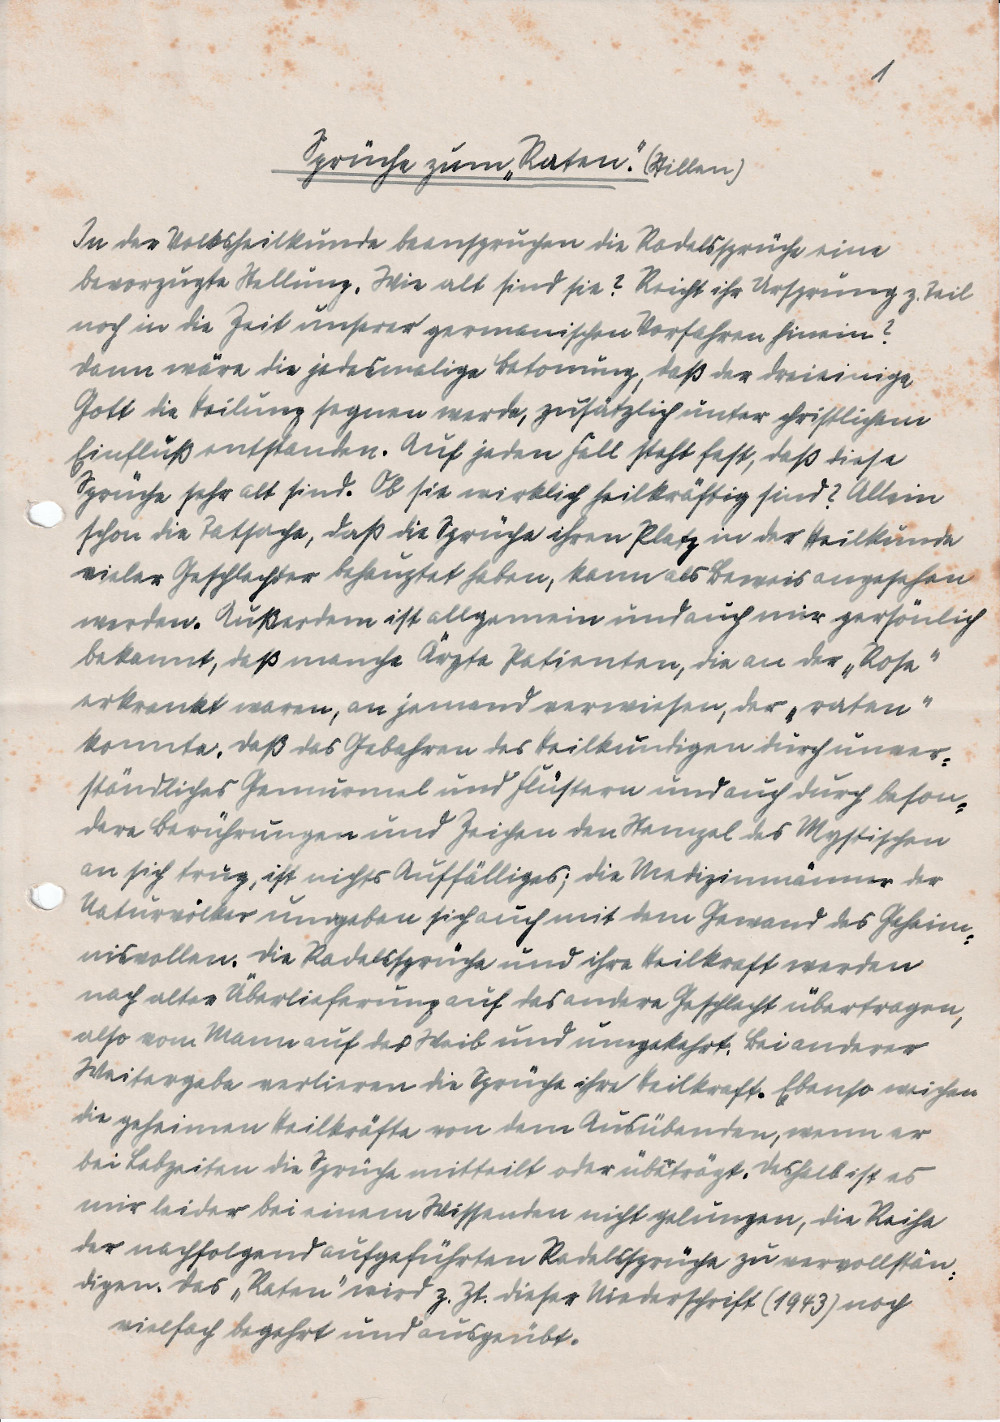 1
Sprüche zum „Raten“. (Stillen)
In der Volksheilkunde beanspruchen die Radelssprüche eine
bevorzugte Stellung. Wie alt sind sie? Reicht ihr Ursprung z. Teil
noch in die Zeit unserer germanischen Vorfahren hinein?
Dann wäre die jedesmalige Betonung, daß der dreieinige
Gott die Heilung segnen werde, zusätzlich unter christlichem
Einfluß entstanden. Auf jeden Fall steht fest, daß diese
Sprüche sehr alt sind. Ob sie wirklich heilkräftig sind? Allein
schon die Tatsache, daß die Sprüche ihren Platz in der Heilkunde
vieler Geschlechter behauptet haben, kann als Beweis angesehen
werden. Außerdem ist allgemein und auch mir persönlich
bekannt, daß manche Ärzte Patienten, die an der „Rose“
erkrankt waren, an jemand verwiesen, der „raten“
konnte. Daß das Gebahren des Heilkundigen durch unver=
ständliches Gemurmel und Flüstern und auch durch beson=
dere Berührungen und Zeichen den Stempel des Mystischen
an sich trug, ist nichts Auffälliges; die Medizinmänner der
Naturvölker umgeben sich auch mit dem Gewand des Geheim=
nisvollen. Die Radelssprüche und ihre Heilkraft werden
nach alter Überlieferung auf das andere Geschlecht übertragen,
also vom Mann auf das Weib und umgekehrt. Bei anderer
Weitergabe verlieren die Sprüche ihre Heilkraft. Ebenso weichen
die geheimen Heilkräfte von dem Ausübenden, wenn er
bei Lebzeiten die Sprüche mitteilt oder überträgt. Deshalb ist es
mir leider bei einem Wissenden nicht gelungen, die Reihe
der nachfolgend aufgeführten Radelssprüche zu vervollstän=
digen. Das „Raten“ wird z. Zt. dieser Niederschrift (1943) noch
vielfach begehrt und ausgeübt.